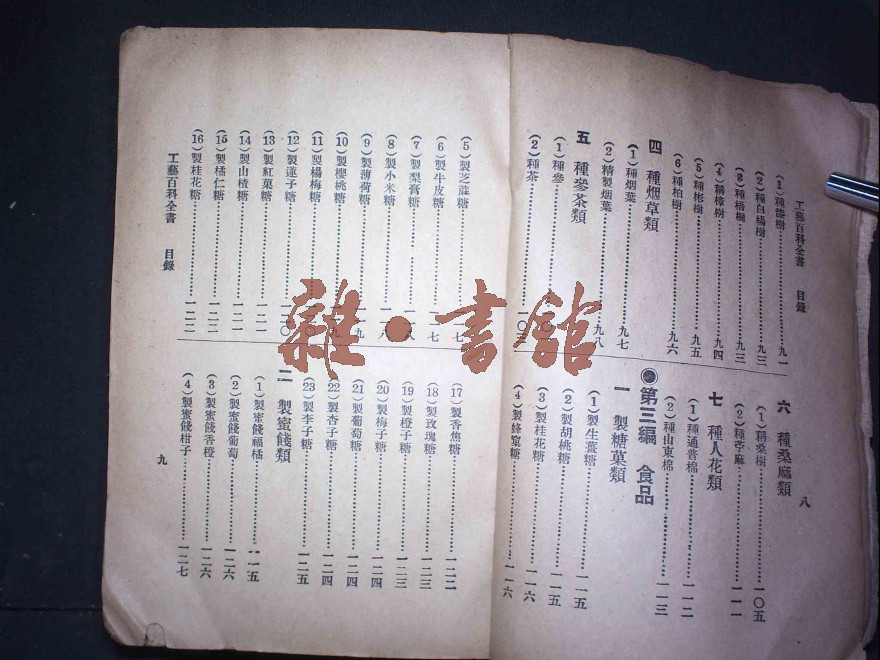 工藝百科全書 目錄
八
(1)種㯶樹……九一
(2)種白楊樹……九三
(3)種梧桐……九三
(4)種樟樹……九四
(5)種彬樹……九五
(6)種柏樹……九六
四 種烟草類
(1)種烟葉……九七
(2)精製烟葉……九八
五 種參茶類
(1)種參……
(2)種茶……一〇三
六 種桑麻類
(1)種桑樹……一〇五
(2)種苧麻……一一一
七 種人花類
(1)種通普棉……一一二
(2)種山東棉……一一三
第三編 食品
一 製糖菓類
(1)製生薑糖……一一五
(2)製胡桃糖……一一五
(3)製桂花糖……一一六
(4)製蜂窠糖……一一六
(5)製芝蔴糖……一七
(6)製牛皮糖……一七
(7)製梨膏糖……一八
(8)製小米糖……一八
(9)製薄荷糖……一九
(10)製櫻桃糖……九
(11)製楊梅糖……
(12)製蓮子糖……一二〇
(13)製紅菓糖……一二一
(14)製山楂糖……一二一
(15)製橘仁糖……一二二
(16)製桂花糖……一二二
(17)製香焦糖……一二二
(18)製玫瑰糖……一二三
(19)製橙子糖……一二三
(20)製梅子糖……一二四
(21)製葡萄糖……一二四
(22)製杏子糖……一二四
(23)製李子糖……一二五
二 製蜜餞類
(1)製蜜餞福橘……一二五
(2)製蜜餞葡萄……一二六
(3)製蜜餞香橙……一二六
(4)製蜜餞柑子……一二七
工藝百科全書 目錄
九
雜·書館